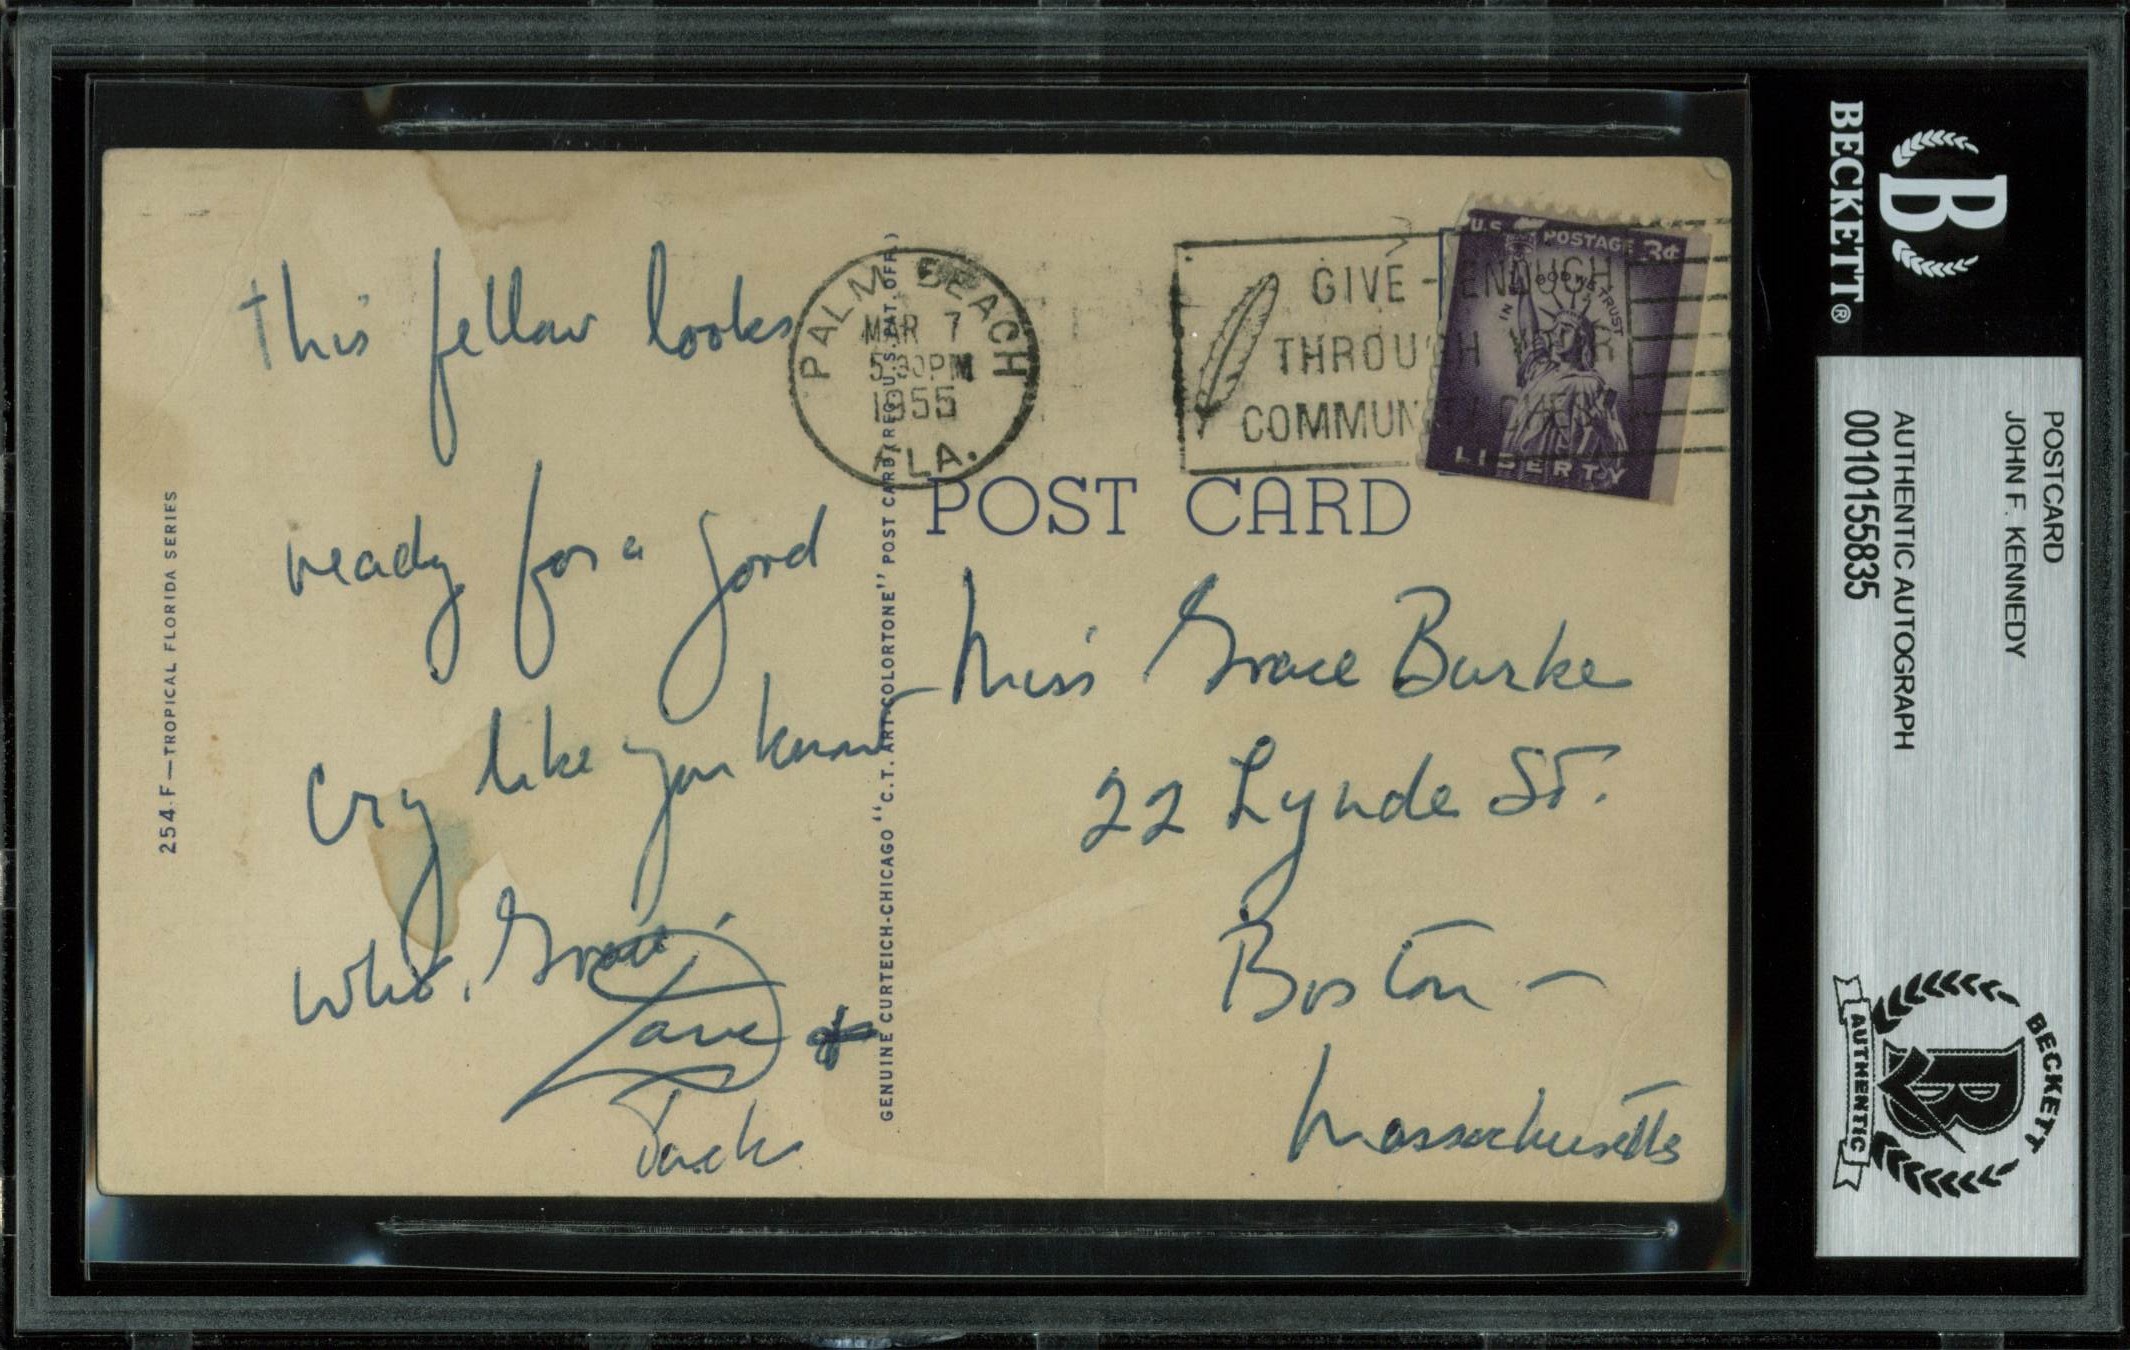 this fellow looks
ready for a good
cry like you know
who, Grace.
Love
Jack
254 F—TROPICAL FLORIDA SERIES
GENUINE CURTEICH-CHICAGO "C.T. ART-COLORTONE" POST CARD (REG. U.S. PAT. OFF.)
PALM BEACH
MAR 7
5:30 PM
1955
FLA.
GIVE - ENOUGH
THROUGH YOUR
COMMUNITY CHEST
U.S. POSTAGE 3¢
IN GOD WE TRUST
LIBERTY
POST CARD
Miss Grace Burke
22 Lynde St.
Boston -
Massachusetts
B
BECKETT®
POSTCARD
JOHN F. KENNEDY
AUTHENTIC AUTOGRAPH
0010155835
BECKETT
B
AUTHENTIC